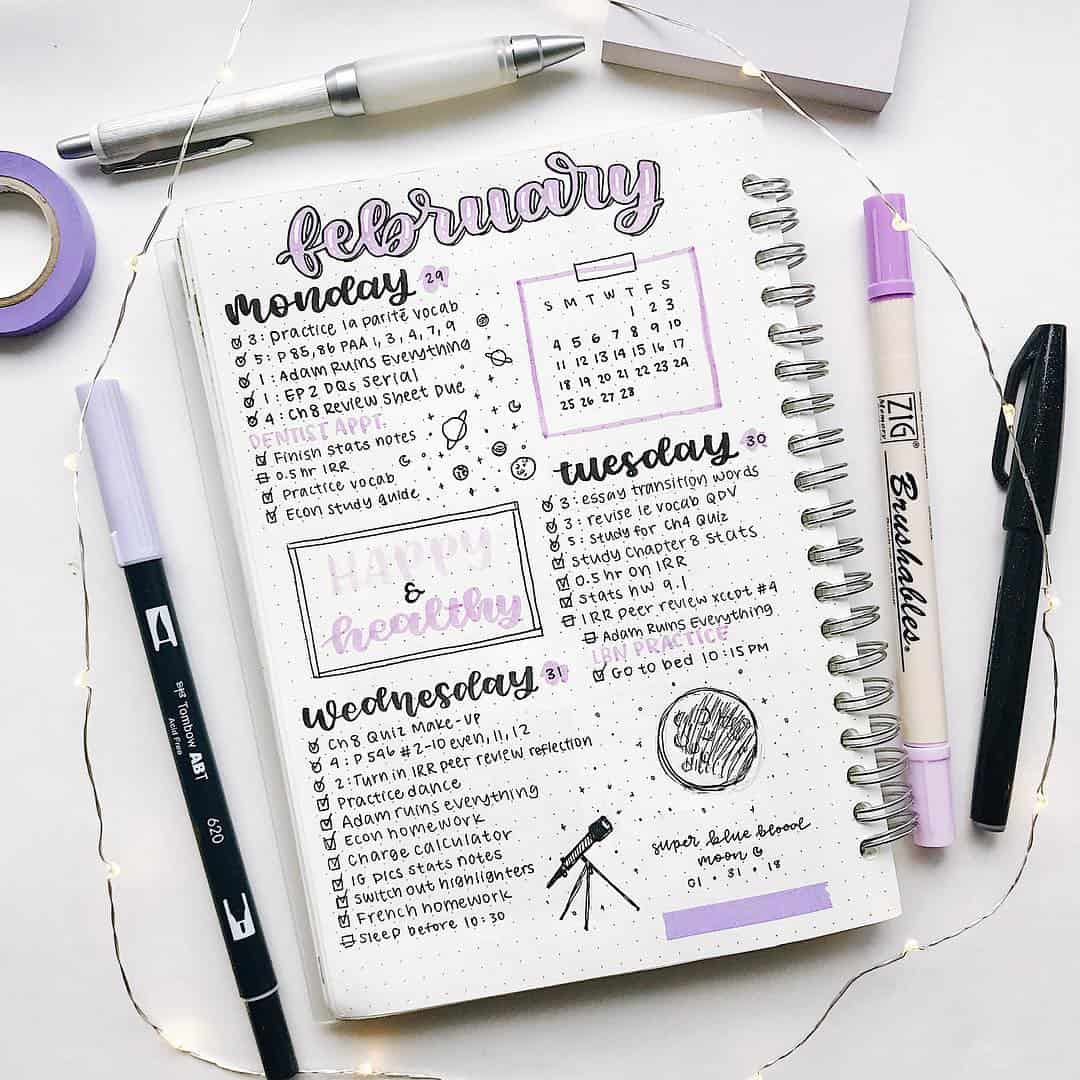 february
monday 29
3: practice la parité vocab
5: P 85, 86 PAA 1, 3, 4, 7, 9
1: Adam Ruins Everything
1: EP 2 DQs Serial
4: Ch 8 Review Sheet Due
DENTIST APPT.
Finish stats notes
0.5 hr IRR
Practice vocab
Econ study guide
S M T W T F S
1 2 3
4 5 6 7 8 9 10
11 12 13 14 15 16 17
18 19 20 21 22 23 24
25 26 27 28
tuesday 30
3: essay transition words
3: revise le vocab QDV
5: study for Ch4 Quiz
study Chapter 8 stats
0.5 hr on IRR
stats hw 9.1
IRR peer review xcept #4
Adam Ruins Everything
LBN PRACTICE
Go to bed 10:15 PM
HAPPY
&
healthy
wednesday 31
Ch 8 Quiz Make-up
4: P 546 #2-10 even, 11, 12
2: Turn in IRR peer review reflection
Practice dance
Adam ruins everything
Econ homework
Charge calculator
IG pics stats notes
switch out highlighters
French homework
Sleep before 10:30
super blue blood
moon
01 • 31 • 18
Tombow ABT
Acid Free
620
ZIG
Memory
Brushables.